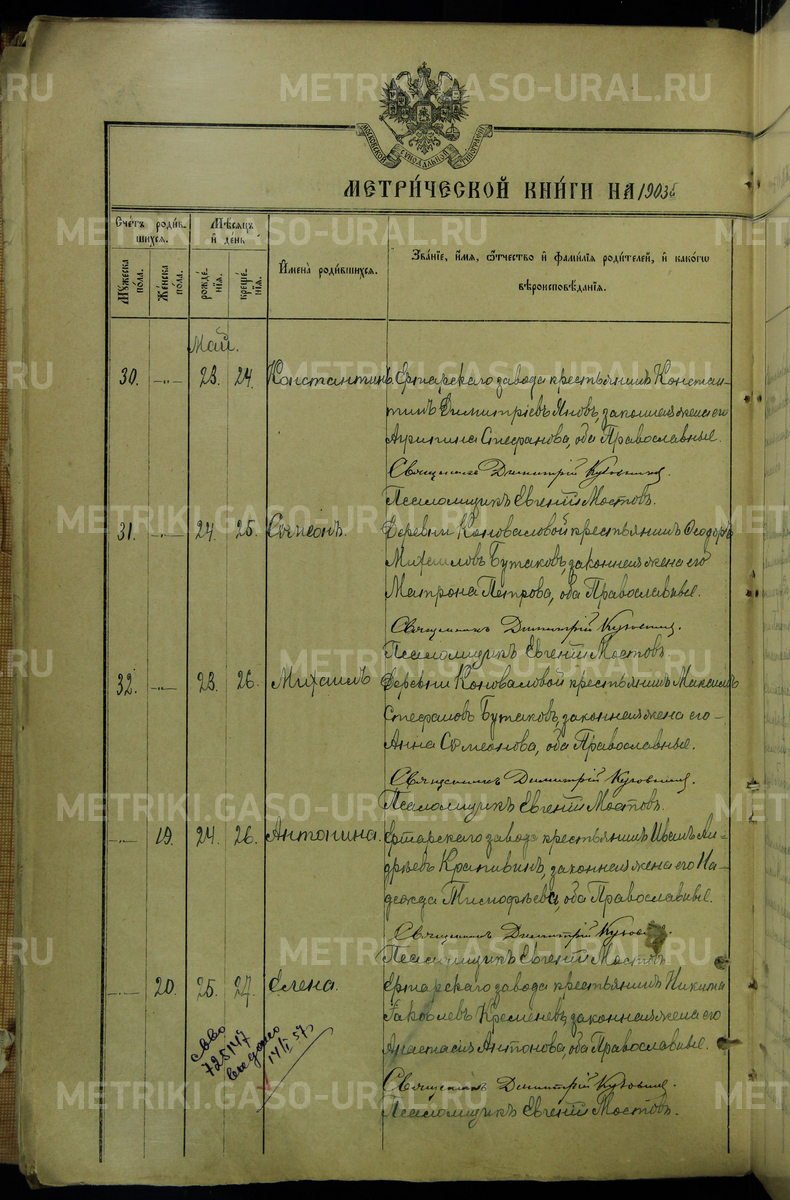 МОСКОВСКОЙ СѴНОДАЛЬНОЙ ТИПОГРАФІИ
МЕТРИ́ЧЕСКОЙ КНИ́ГИ НА 1903
Сче́тъ роди́в-
шихся.
Мѣ́сяцъ
и҆ де́нь
Мꙋ́жеска
по́ла.
Же́нска
по́ла.
рожде́-
нїѧ.
креще́-
нїѧ.
И҆мена̀ роди́вшихся.
Зва́нїе, и҆́мѧ, ѻ҆́тчество и҆ фами́лїѧ роди́телей, и҆ како́гѡ
вѣроисповѣ́данїѧ.
Май.
30. —"— 23. 24. Константинъ. Ертарскаго завода крестьянинъ Констан-
тинъ Димитріевъ Яновъ, законная жена его
Агрипина Стефанова, оба Православные.
Священникъ Димитрій
Псаломщикъ Евгеній Мостовъ.
31. —"— 24. 25. Сѵмеонъ. Деревни Коноваловой крестьянинъ Ѳеодоръ
Михаиловъ Бутаковъ, законная жена его
Матрона Петрова, оба Православные.
Священникъ Димитрій
Псаломщикъ Евгеній Мостовъ.
32. —"— 23. 26. Михаилъ Деревни Коноваловой крестьянинъ Максимъ
Стефановъ Бутаковъ, законная жена его
Анна Сѵмеонова, оба Православные.
Священникъ Димитрій
Псаломщикъ Евгеній Мостовъ.
—"— 19. 24. 26. Антонина. Ертарскаго завода крестьянинъ Иванъ Ан-
дреевъ Крапивинъ, законная жена его На-
дежда Тимофѣева, оба Православные.
Священникъ Димитрій
Псаломщикъ Евгеній Мостовъ
—"— 20. 25. 27. Елена. Ертарскаго завода крестьянинъ Никита
Іаковлевъ Кремневъ, законная жена его
Анастасія Антонова, оба Православные.
Священникъ Димитрій
Псаломщикъ Евгеній Мостовъ.
725147
14/I 57
METRIKI.GASO-URAL.RU